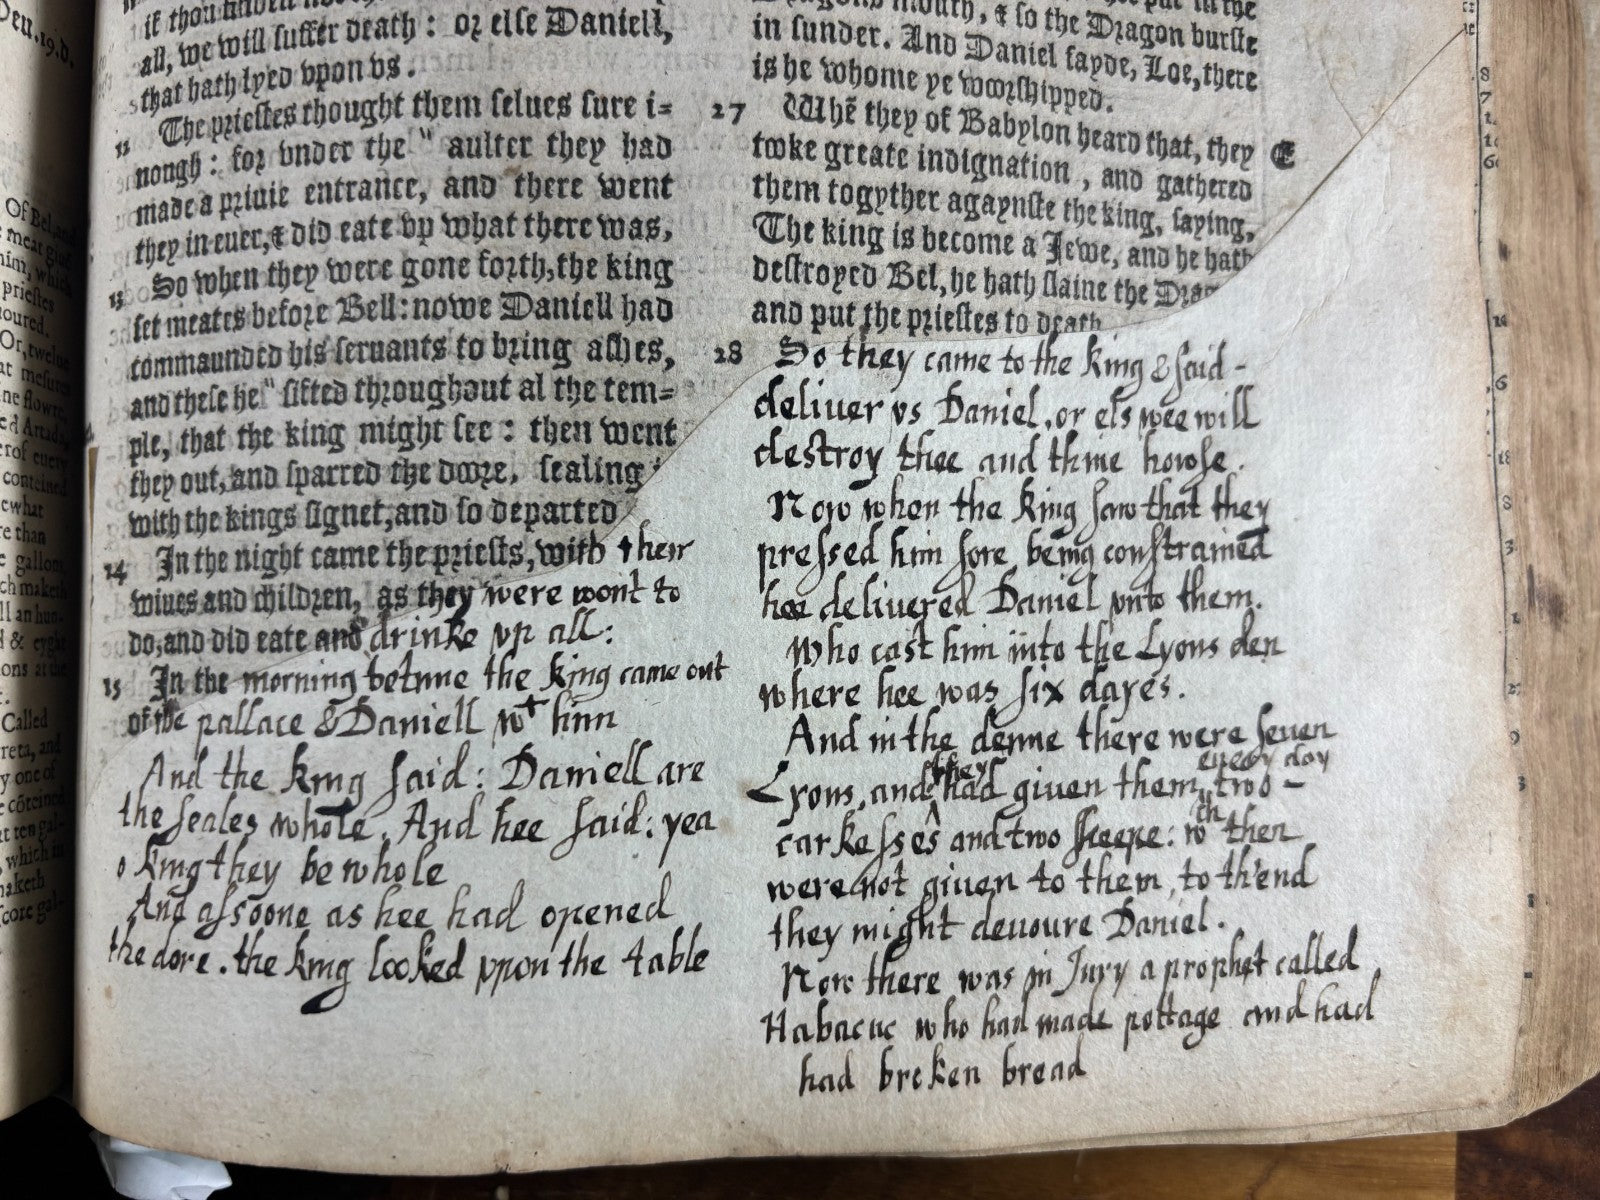 Deu.19.d.
all, we will suffer death: or else Daniell,
that hath lyed vpon vs.
12 The priestes thought them selues sure i=
nongh: for vnder the " aulter they had
made a priuie entrance, and there went
they in euer, & did eate vp what there was,
13 So when they were gone forth, the king
set meates before Bell: nowe Daniell had
commaunded his seruants to bring ashes,
and these he " sifted throughout al the tem=
ple, that the king might see: then went
they out, and sparred the doore, sealing
with the kings signet, and so departed
14 In the night came the priests, with their
wiues and children, as they were wont to
do, and did eate and drinke vp all:
15 In the morning betime the king came out
of the pallace & Daniell wt him
And the king said: Daniell are
the seales whole. And hee said: yea
o king they be whole
And assoone as hee had opened
the dore. the king looked vpon the table
mouth, & so the Dragon burste
in sunder. And Daniel sayde, Loe, there
is he whome ye woorshipped.
27 Whē they of Babylon heard that, they
tooke greate indignation, and gathered
them togyther agaynste the king, saying,
The king is become a Jewe, and he hath
destroyed Bel, he hath slaine the Drag
and put the priestes to death
28 So they came to the king & said -
deliuer vs Daniel, or els wee will
destroy thee and thine howse.
Now when the king saw that they
pressed him sore being constrained
hee delivered Daniel vnto them.
Who cast him into the Lyons den
where hee was six dayes.
And in the denne there were seuen
Lyons, and they had given them euery day two -
carkesses and two sheepe: wth then
were not given to them, to th'end
they might deuoure Daniel.
Now there was in Jury a prophet called
Habacuc who had made pottage and had
had broken bread
E
Of Bel, and
priestes
uoured.
Or, twelue
than
Called